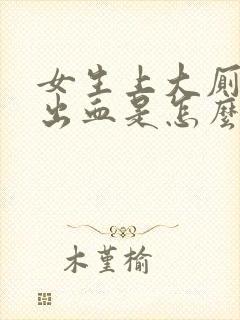 女生上大厕
出血是怎麼
木堇榆